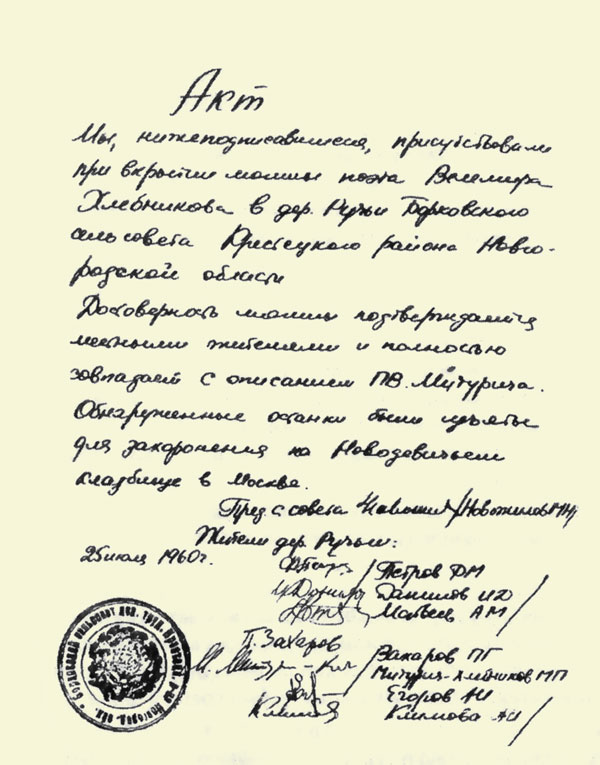 Акт
Мы, нижеподписавшиеся, присутствовали
при вскрытии могилы поэта Велемира
Хлебникова в дер. Ручьи Борковского
сельсовета Крестецкого района Новго-
родской области
Достоверность могилы подтверждается
местными жителями и полностью
совпадает с описанием П.В. Митурича.
Обнаруженные останки были изъяты
для захоронения на Новодевичьем
кладбище в Москве.
Пред с совета /Новожилов МН/
Жители дер. Ручьи:
25 июля 1960г.
/Петров ФМ
/Данилов ИО/
/Матвеев АМ/
П. Захаров /Захаров ПГ
М. Митур-Хл /Митурич-Хлебников МП
/Егоров АИ
/Климова АИ/